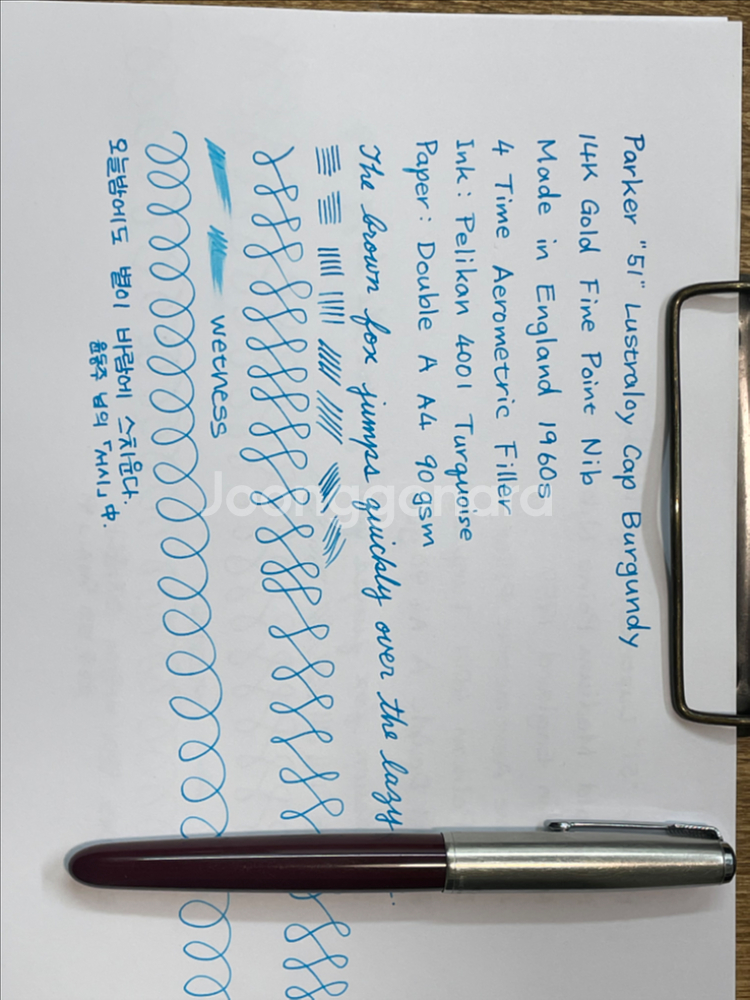 Parker "51" Lustraloy Cap Burgundy
14K Gold Fine Point Nib
Made in England 1960s
4 Time Aerometric Filler
Ink : Pelikan 4001 Turquoise
Paper : Double A A4 90gsm
The brown fox jumps quickly over the lazy
wetness
오늘밤에도 별이 바람에 스치운다.
윤동주 님의 「서시」 中.
Joonggonara